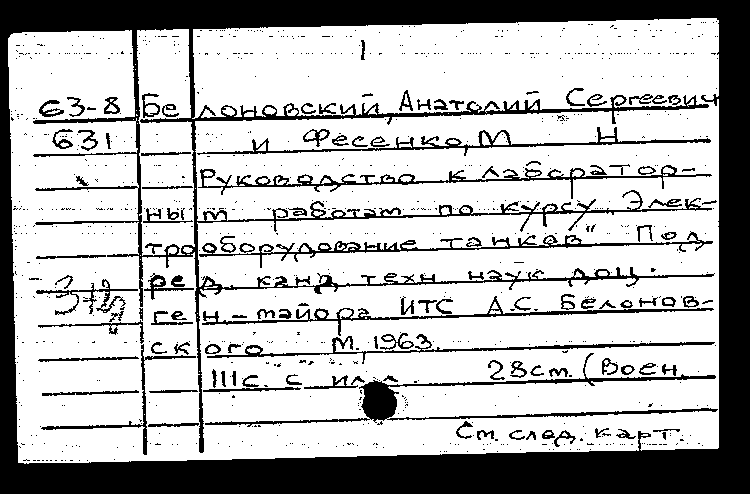 63-8 Белоновский, Анатолий Сергеевич
631 и Фесенко, М Н
Руководство к лаборатор-
ным работам по курсу „Элек-
трооборудование танков" Под
ред. канд. техн наук доц.
ген.-майора ИТС А.С. Белонов-
ского. М., 1963.
111с. с илл. 28см. (Воен.
См. след. карт.